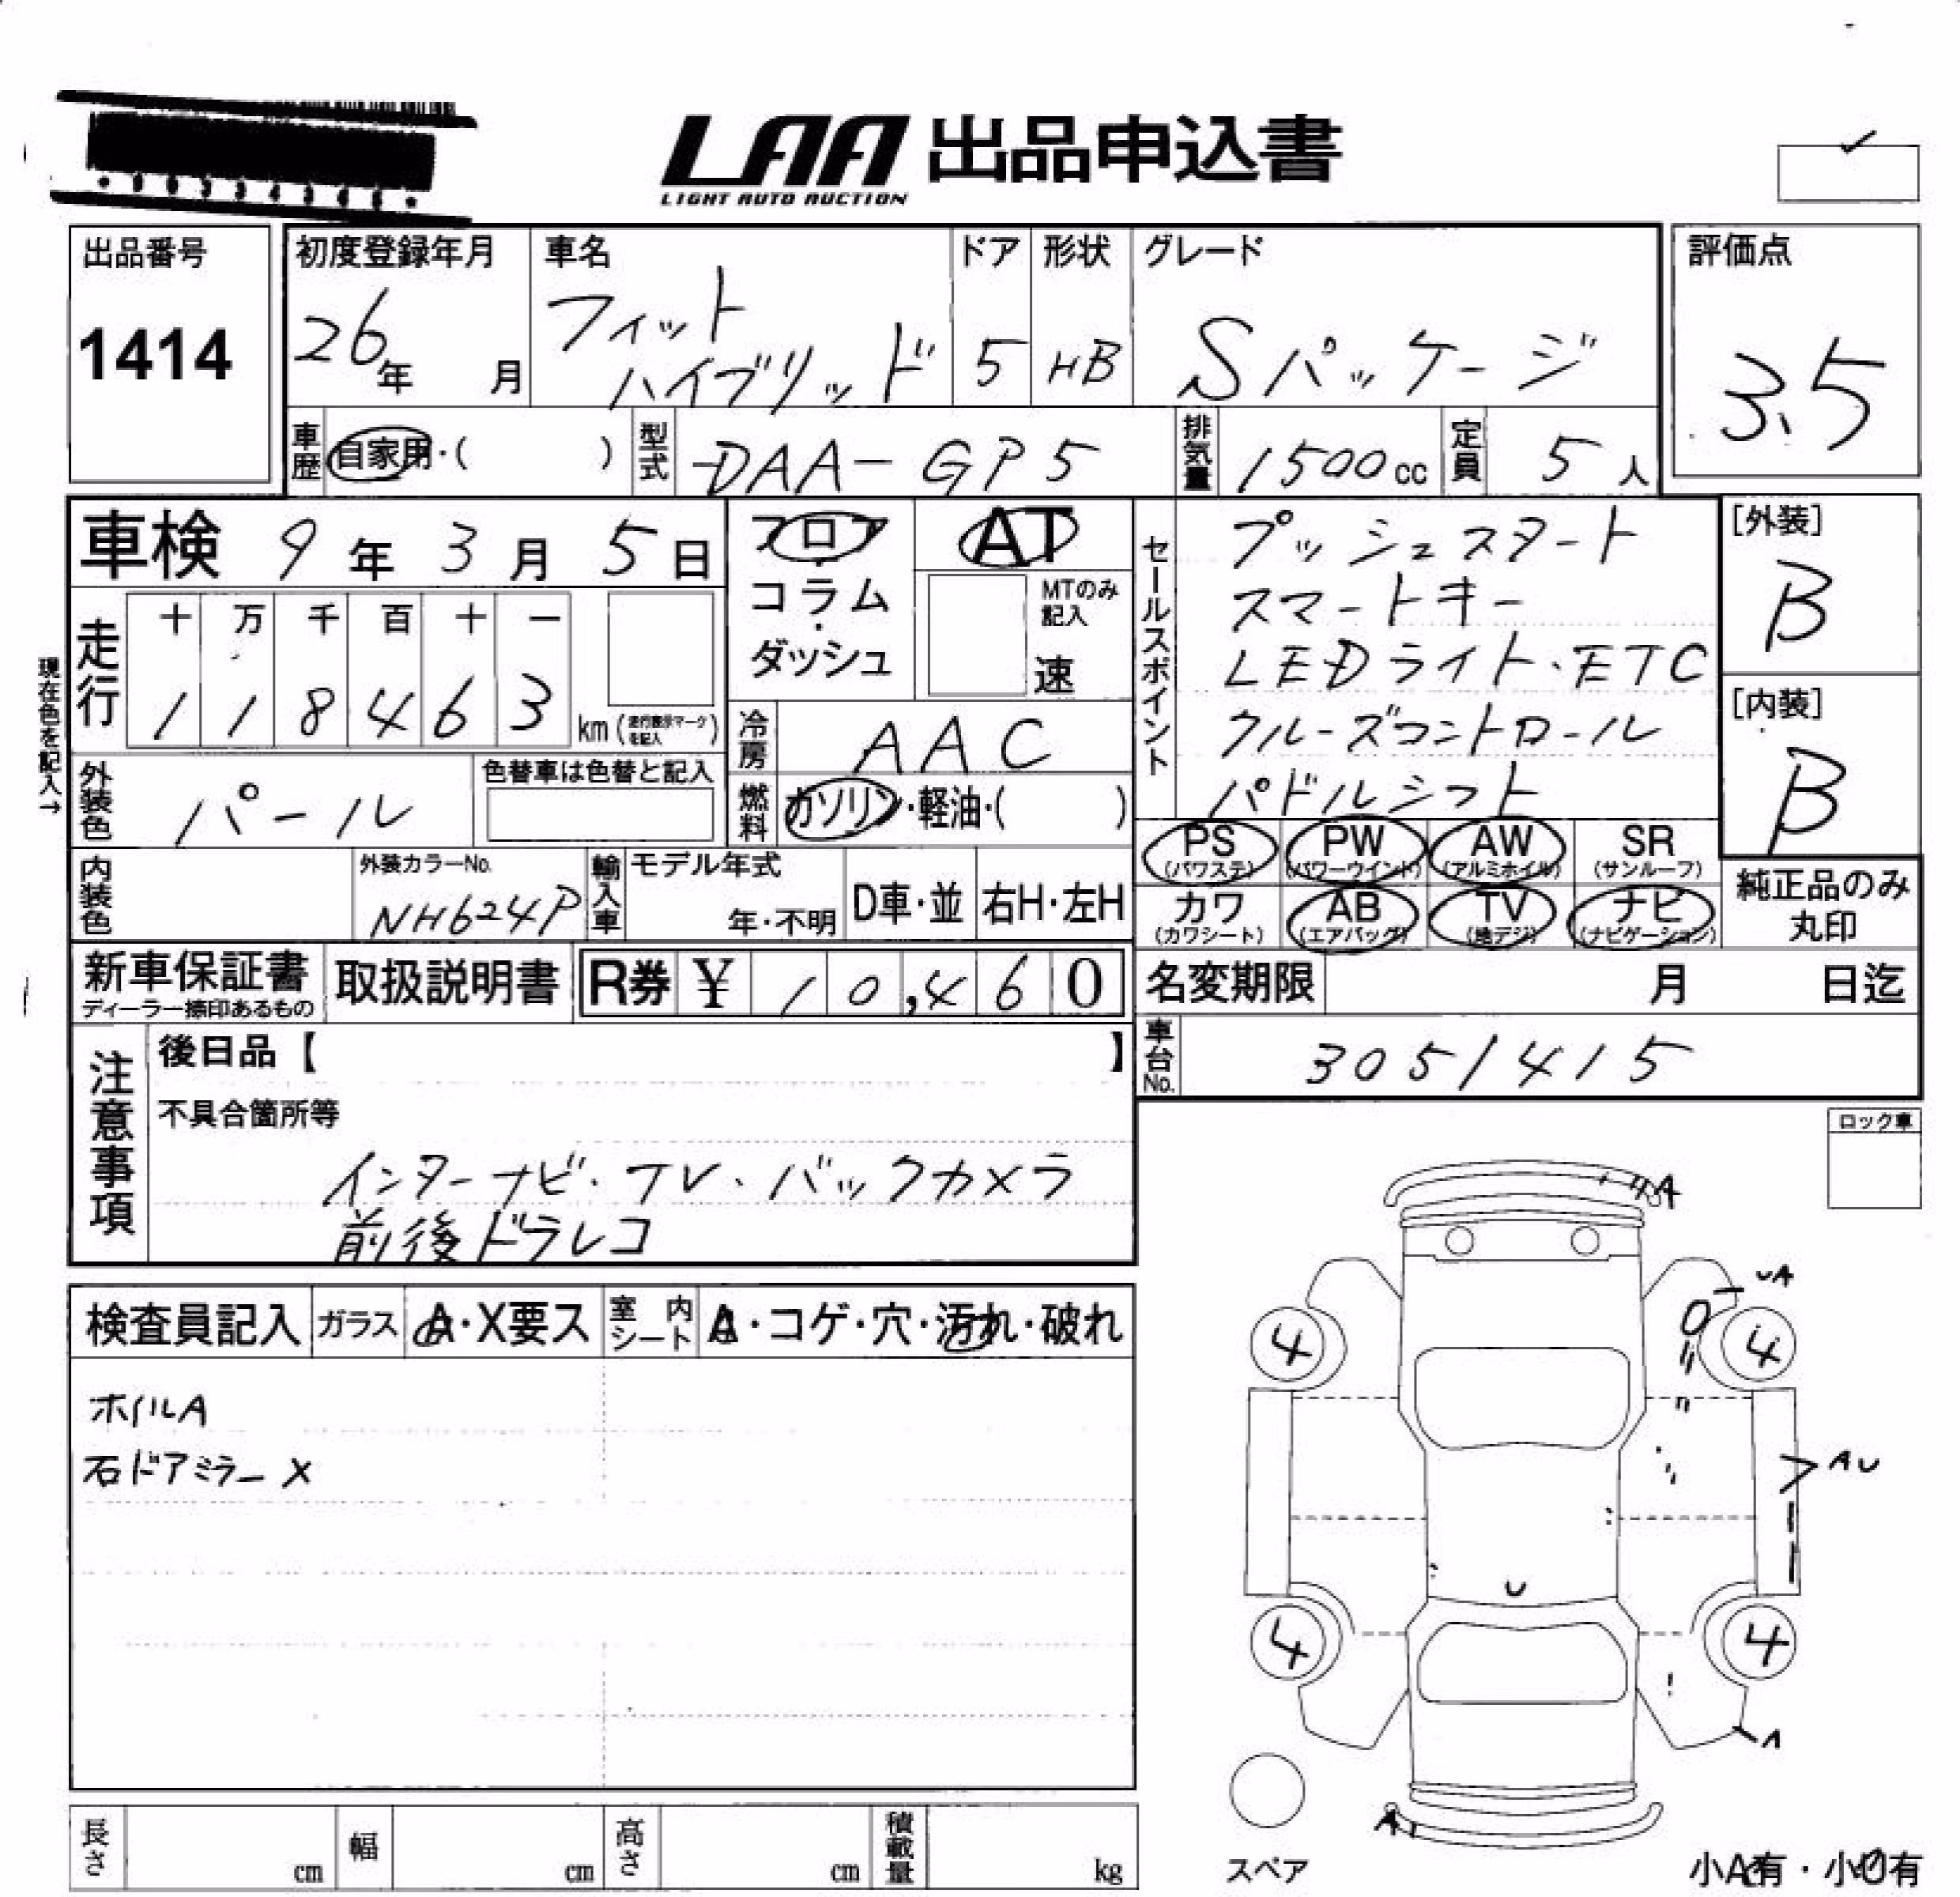 LAA 出品申込書
LIGHT AUTO AUCTION
出品番号
1414
初度登録年月
26年 月
車名
フィット
ハイブリッド
ドア
5
形状
HB
グレード
Sパッケージ
評価点
3.5
車歴
自家用・( )
型式
DAA-GP5
排気量
1500cc
定員
5人
車検 9年3月5日
フロア
コラム
・
ダッシュ
AT
MTのみ
記入
速
セールスポイント
プッシュスタート
スマートキー
LEDライト・ETC
クルーズコントロール
パドルシフト
[外装]
B
[内装]
B
現在色を記入→
走行
十 万 千 百 十 一
1 1 8 4 6 3 km (走行表示マークを記入)
冷房
AAC
外装色
パール
色替車は色替と記入
燃料
ガソリン・軽油・( )
PS (パワステ)
PW (パワーウインド)
AW (アルミホイル)
SR (サンルーフ)
カワ (カワシート)
AB (エアバッグ)
TV (地デジ)
ナビ (ナビゲーション)
純正品のみ
丸印
内装色
外装カラーNo.
NH624P
輸入車
モデル年式
年・不明
D車・並
右H・左H
新車保証書
ディーラー捺印あるもの
取扱説明書
R券 ¥ 10,460
名変期限 月 日迄
車台No.
3051415
注意事項
後日品【 】
不具合箇所等
インターナビ・TV・バックカメラ
前後ドラレコ
ロック車
検査員記入
ガラス
A・X要ス
室内シート
A・コゲ・穴・汚れ・破れ
ホイルA
右ドアミラーX
A
UA
4
4
AU
U
4
4
A
A
スペア
小A有・小U有
長さ cm
幅 cm
高さ cm
積載量 kg